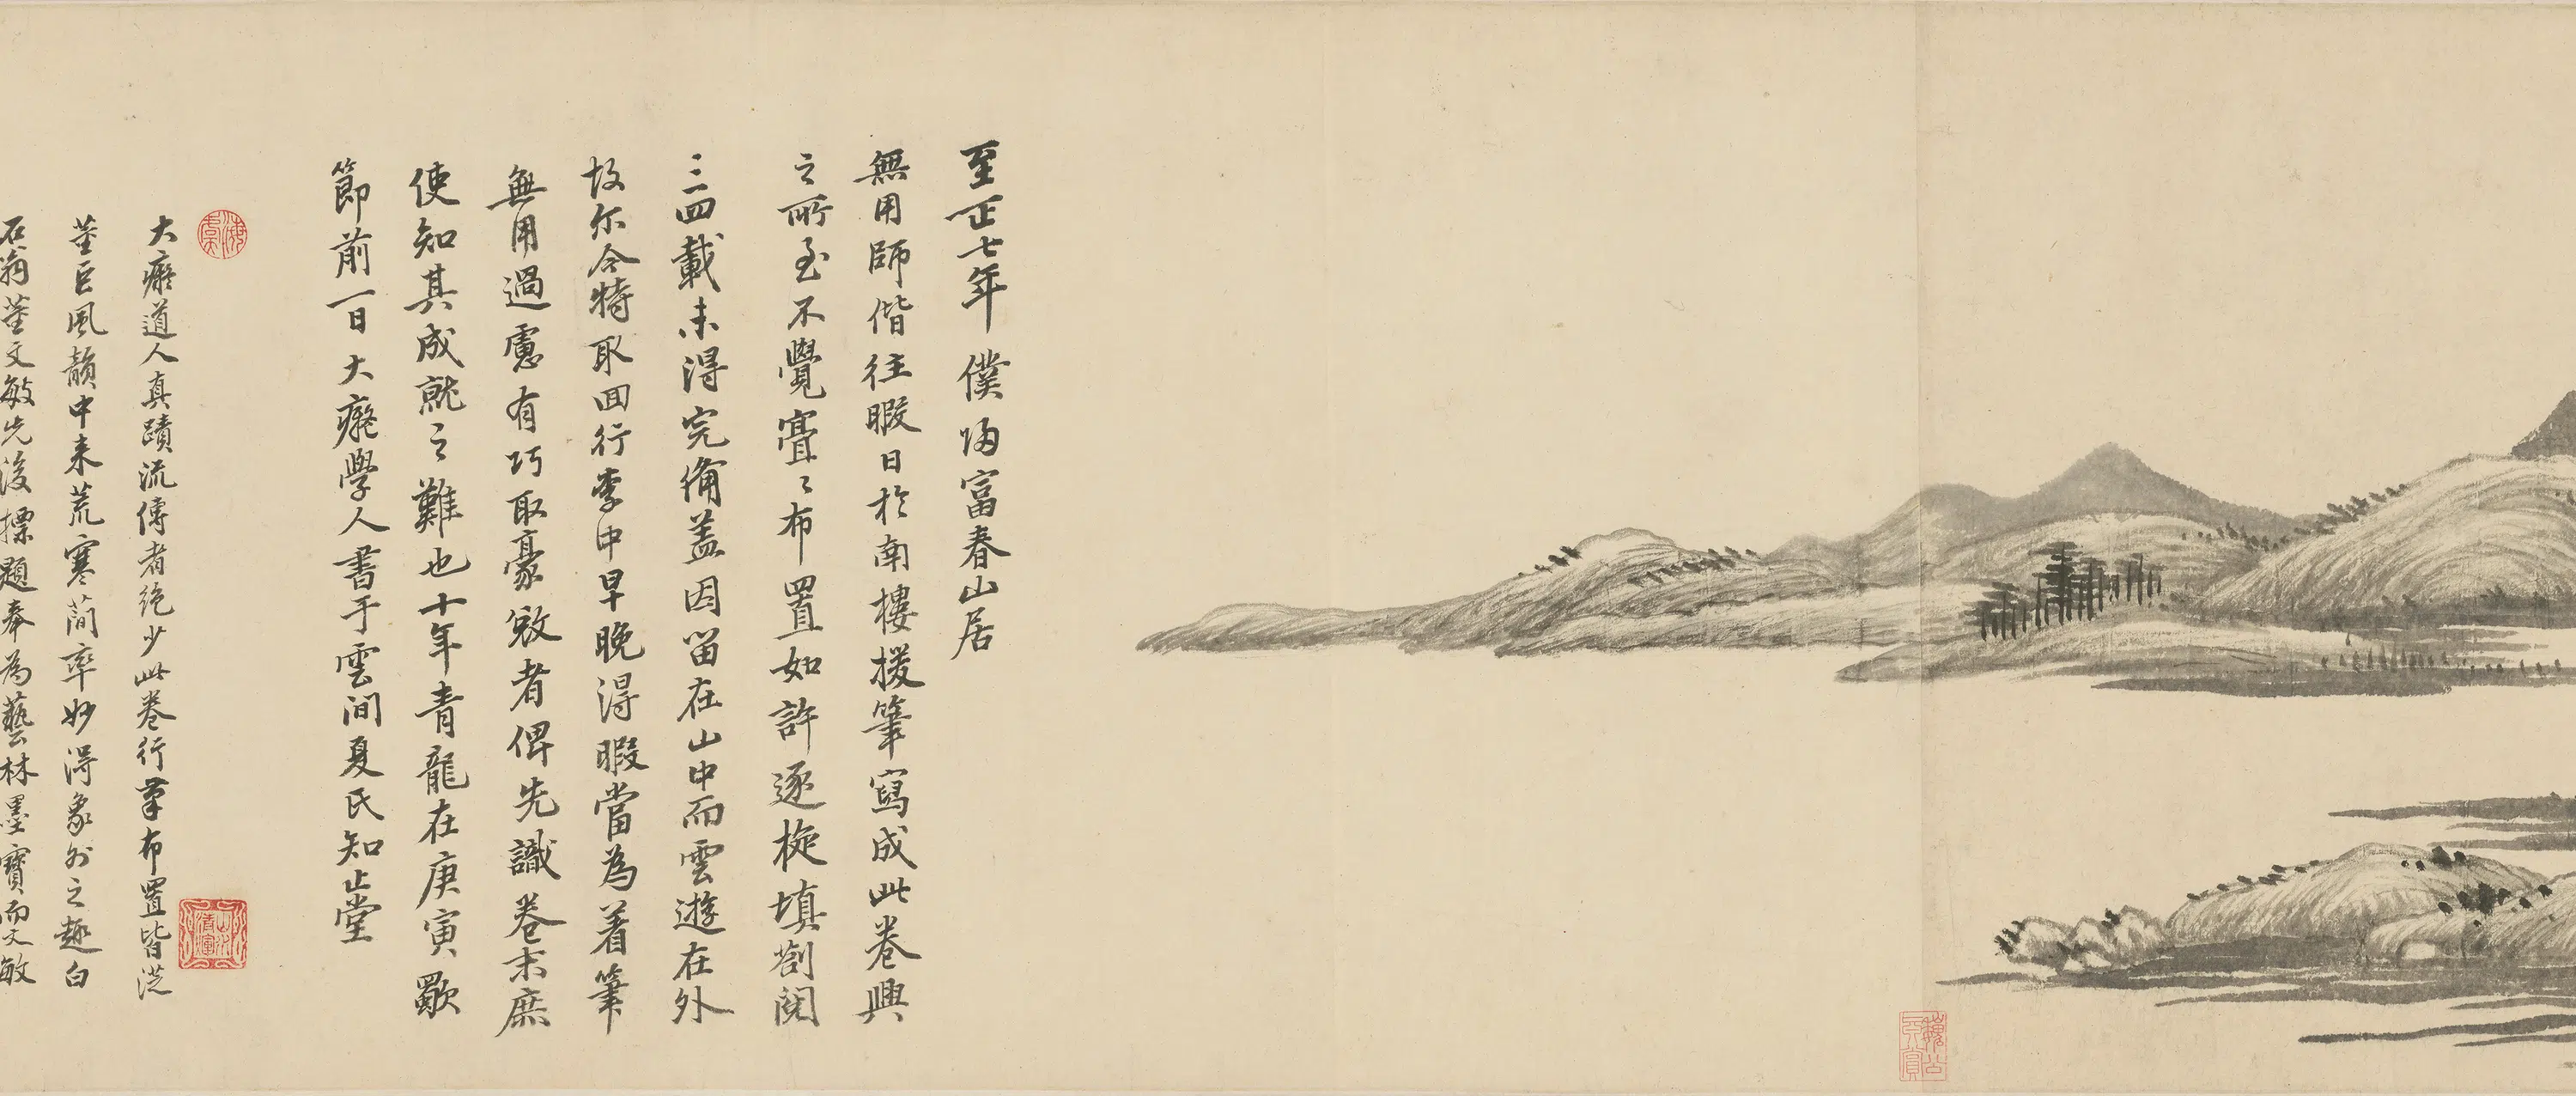 至正七年 僕歸富春山居
無用師偕往暇日於南樓援筆寫成此卷興
之所至不覺亹〻布置如許逐旋填劄閱
三四載未得完備盖因留在山中而雲遊在外
故尔今特取回行李中早晚得暇當為着筆
無用過慮有巧取豪敓者俾先識卷末庶
使知其成就之難也十年青龍在庚寅歜
節前一日大癡學人書于雲間夏氏知止堂
海虞
大癡道人真蹟流傳者絕少此卷行筆布置皆從
董巨風韻中来荒寒簡率妙得象外之趣白
石翁董文敏先後標題奉為藝林墨寶而文敏